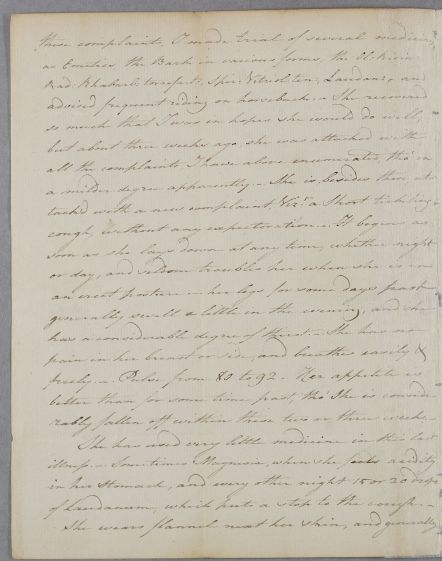 those complaints, I made trial of several medicines,
as Emetics, the Bark in various forms, the Ol: Ricin:
Rad: Rhabarb: torrefact:, Spir: Vitriol: ten:, Laudanum, and
advised frequent riding on horseback. - She recovered
so much that I was in hopes she would do well,
but about three weeks ago, she was attacked with
all the complaints, I have above enumerated, tho' in
a milder degree apparently - She is besides these at-
tack'd with a new complaint, Vizt. a Short tickling
cough, without any expectoration. - It begins as
soon as she lays down at any time, whether night
or day, and seldom troubles her when she is in
an erect posture - her legs for some days past
generally swell a little in the evening, and she
has a considerable degree of thirst - She has no
pain in her breast or side, and breathes easily &
freely. - Pulse from 80 to 92 - Her appetite is
better than for some time past, tho' She is conside-
rably fallen off within these two or three weeks -
She has used very little medicine in this last
illness - Sometimes Magnesia, when she feels acidity
in her Stomach, and every other night 15 or 20 drops
of Laudanum, which puts a stop to the cough. -
She wears flannel next her skin, and generally